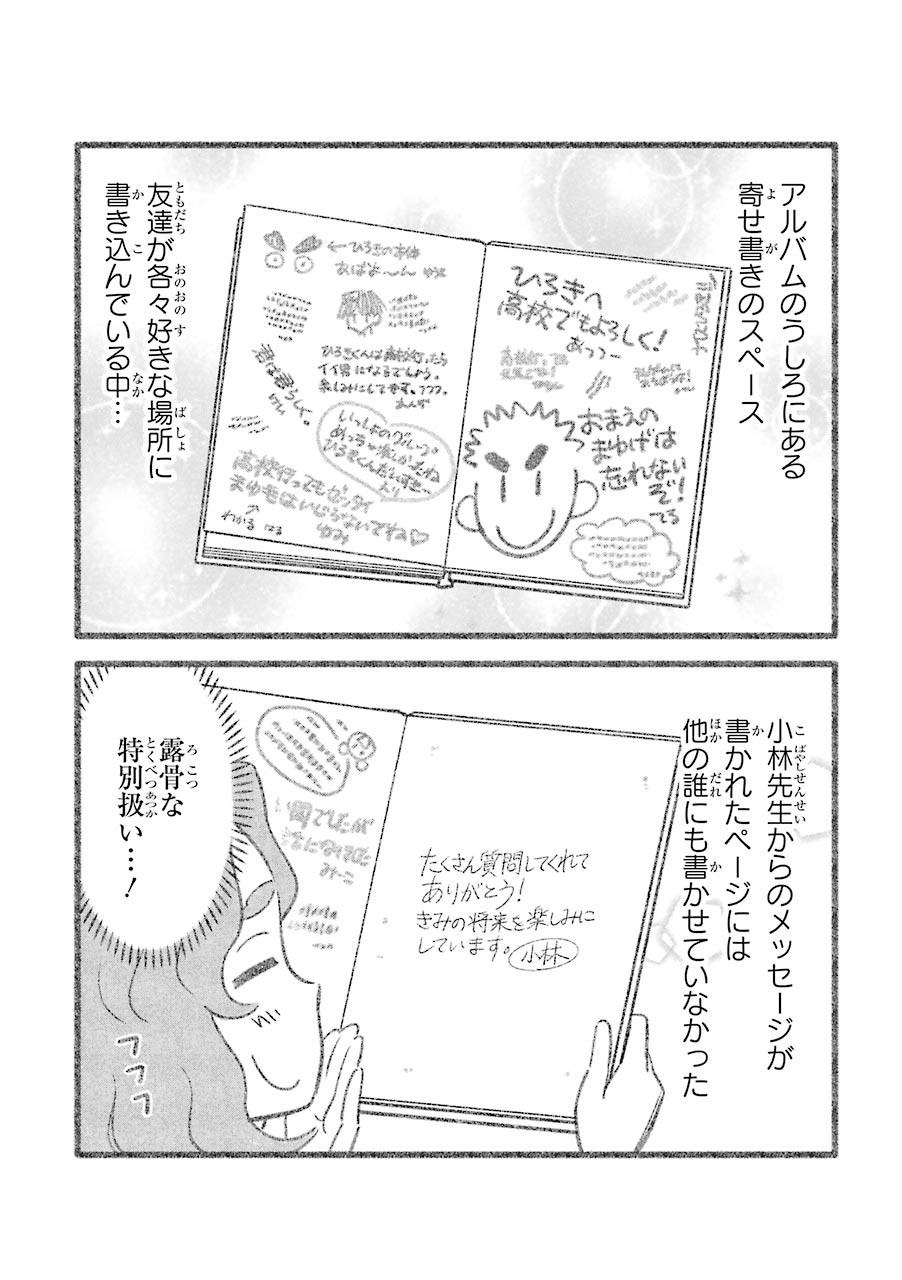 アルバムのうしろにある
寄せ書きのスペース
友達が各々好きな場所に
書き込んでいる中…
ひろきへ
高校でもよろしく!
あっつー
おまえの
まゆげは
忘れない
ぞ!
てる
←ひろきの本体
おはよ〜
ひろきくんは高校行ったら
イイ男になるでしょう。
楽しみにしてます。フフフ。
あんず
君は君らしく。
いっしょのグループ
めっちゃ楽しかったね
ひろきくんだいすきー
高校行ってもゼッタイ
まゆ毛はいじらないでね♡
ゆみ
わかる
小林先生からのメッセージが
書かれたページには
他の誰にも書かせていなかった
たくさん質問してくれて
ありがとう!
きみの将来を楽しみに
しています。小林
みーこ
露骨な
特別扱い…!
フフフ